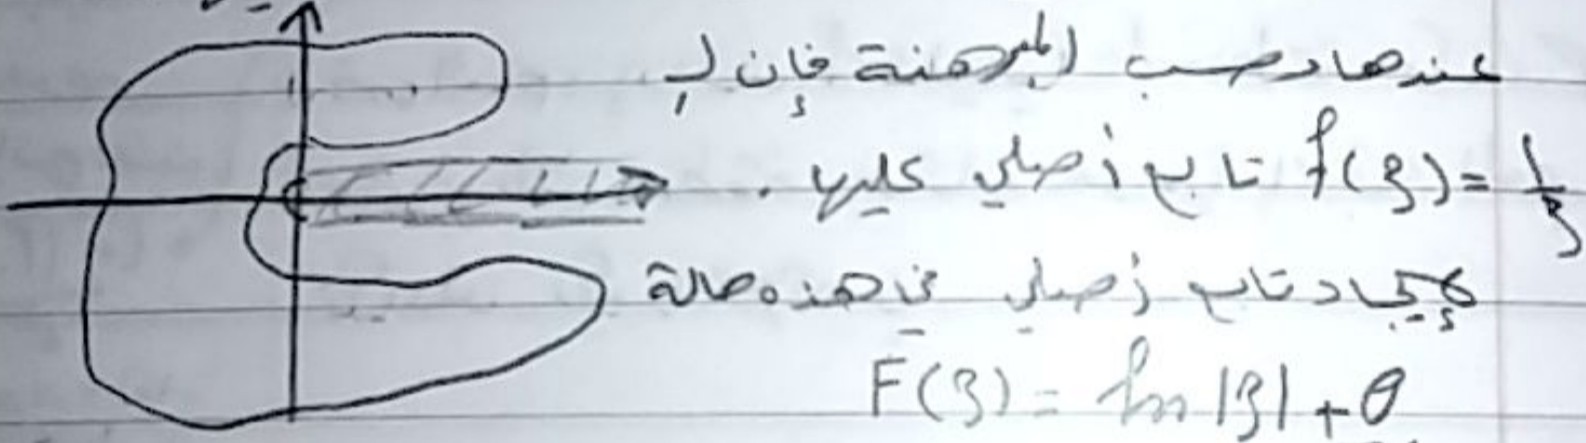 عندها وحسب المبرهنة فإن لـ
f(z) = 1/z تابع أصلي عليها.
إيجاد تابع أصلي في هذه حالة
F(z) = ln |z| + θ